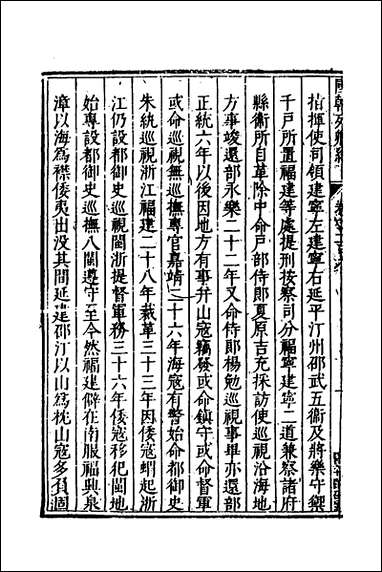 國朝列卿紀
指揮使司領建寧左建寧右延平汀州邵武五衛及將樂守禦
千戶所置福建等處提刑按察司分福寧建寧二道兼察諸府
縣衛所自革除中命戶部侍郎夏原吉充採訪使巡視沿海地
方事竣還部永樂二十二年又命侍郎楊勉巡視事畢亦還部
正統六年以後因地方有事并山寇竊發或命鎮守或命督軍
或命巡視無巡撫專官嘉靖二十六年海寇有警始命都御史
朱紈巡視浙江福建二十八年裁革三十三年因倭寇蝟起浙
江仍設都御史巡視閩浙提督軍務三十六年倭寇移犯閩地
始專設都御史巡撫八閩遵守至今然福建僻在南服福興泉
漳以海為襟倭夷出沒其間延建邵汀以山為枕山寇多負固